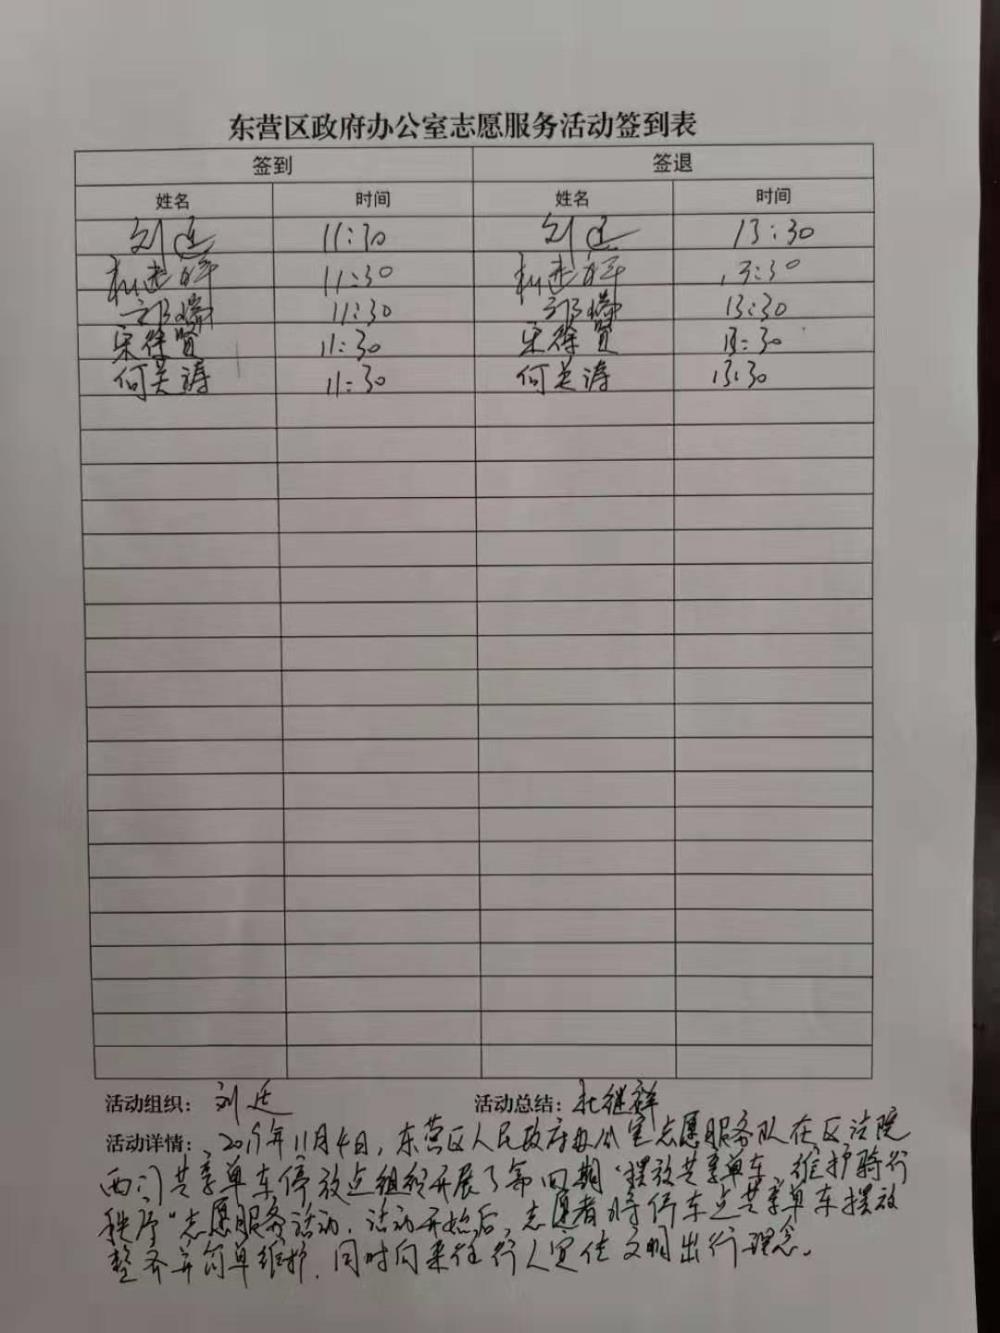 东营区政府办公室志愿服务活动签到表
签到 签退
姓名 时间 姓名 时间
刘廷 11:30 刘廷 13:30
杜继祥 11:30 杜继祥 13:30
11:30 13:30
宋徐贤 11:30 宋徐贤 13:30
何英涛 11:30 何英涛 13:30
活动组织：刘廷 活动总结：杜继祥
活动详情：2019年11月4日，东营区人民政府办公室志愿服务队在区法院
西门共享单车停放点组织开展了第四期“摆放共享单车，维护骑行
秩序”志愿服务活动。活动开始后，志愿者将停车点共享单车摆放
整齐并简单维护，同时向来往行人宣传文明出行理念。